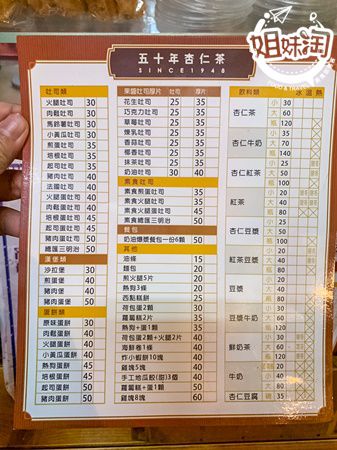 姐妹淘
五十年杏仁茶
SINCE1948
吐司類
火腿吐司 30
肉鬆吐司 30
馬鈴薯吐司 30
小黃瓜吐司 30
煎蛋吐司 35
熱狗吐司 35
培根吐司 35
起司吐司 35
豬肉吐司 40
法國吐司 40
火腿蛋吐司 40
肉鬆蛋吐司 40
培根蛋吐司 45
起司蛋吐司 45
豬肉蛋吐司 50
總匯三明治 50
漢堡類
沙拉堡 30
煎蛋堡 40
豬肉堡 40
豬肉蛋堡 50
蛋餅類
原味蛋餅 30
肉鬆蛋餅 40
火腿蛋餅 40
小黃瓜蛋餅 40
熱狗蛋餅 45
培根蛋餅 45
起司蛋餅 45
豬肉蛋餅 50
果醬吐司厚片 吐司 厚片
花生吐司 25 35
巧克力吐司 25 35
草莓吐司 25 35
煉乳吐司 25 35
香蒜吐司 25 35
椰香吐司 25 35
抹茶吐司 25 35
奶油吐司 30 40
素食吐司
素食煎蛋吐司 35
素食火腿吐司 35
素食火腿蛋吐司 45
素食總匯三明治 50
餐包
奶油爆漿餐包一份6顆 50
其他
油條 15
麵包 20
煎火腿5片 20
熱狗3條 20
西點糕餅 20
荷包蛋2顆 30
蘿蔔糕2片 35
熱狗+蛋1顆 35
荷包蛋2顆+火腿2片 40
海鮮卷1條 40
炸小蝦餅10塊 40
雞塊5塊 40
手工地瓜餃(甜)3個 40
蘿蔔糕+蛋1顆 50
雞塊8塊 60
飲料類 冰 溫 熱
杏仁茶 小 30
大 60
瓶 120
杏仁牛奶 小 35
大 70
瓶 140
杏仁紅茶 小 25
大 50
瓶 100
紅茶 小 20
大 40
瓶 80
杏仁豆漿 小 25
大 50
瓶 100
紅茶豆漿 小 20
大 40
瓶 80
豆漿 小 20
大 40
瓶 80
豆漿牛奶 小 30
大 60
瓶 120
鮮奶茶 小 30
大 60
瓶 120
牛奶 小 40
大 80
杏仁豆腐 碗 35